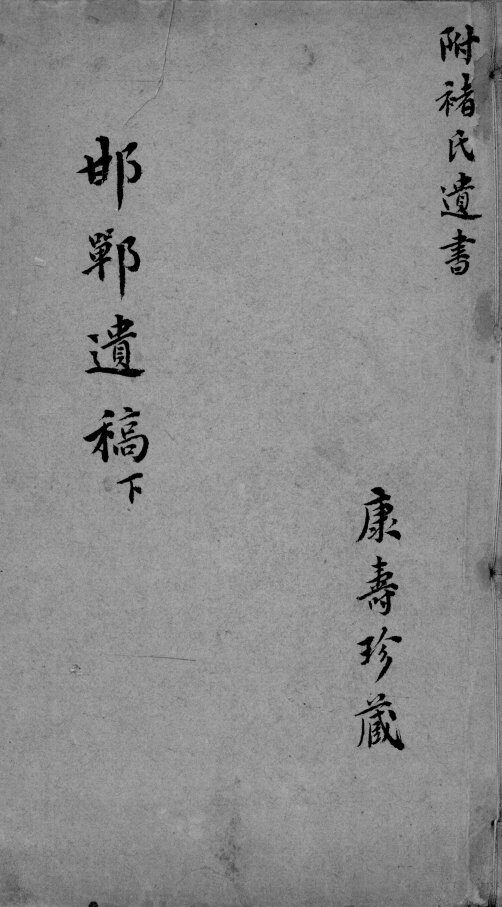 附褚氏遺書
康壽珍藏
邯鄲遺稿下